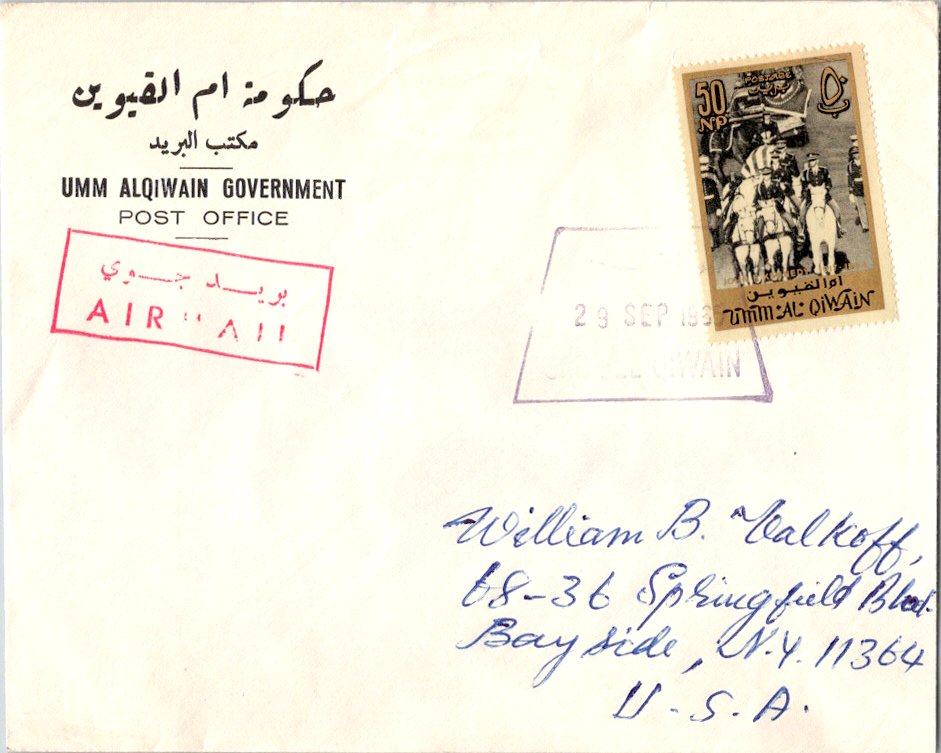 حكومة ام القيوين
مكتب البريد
UMM ALQIWAIN GOVERNMENT
POST OFFICE
بريد جوي
AIR
50
NP
POSTAGE
٥٠
ام القيوين
UMM·AL·QIWAIN
29 SEP 196
QIWAIN
William B. Valkoff,
68-36 Springfield Blvd.
Bayside, N.Y. 11364
U.S.A.